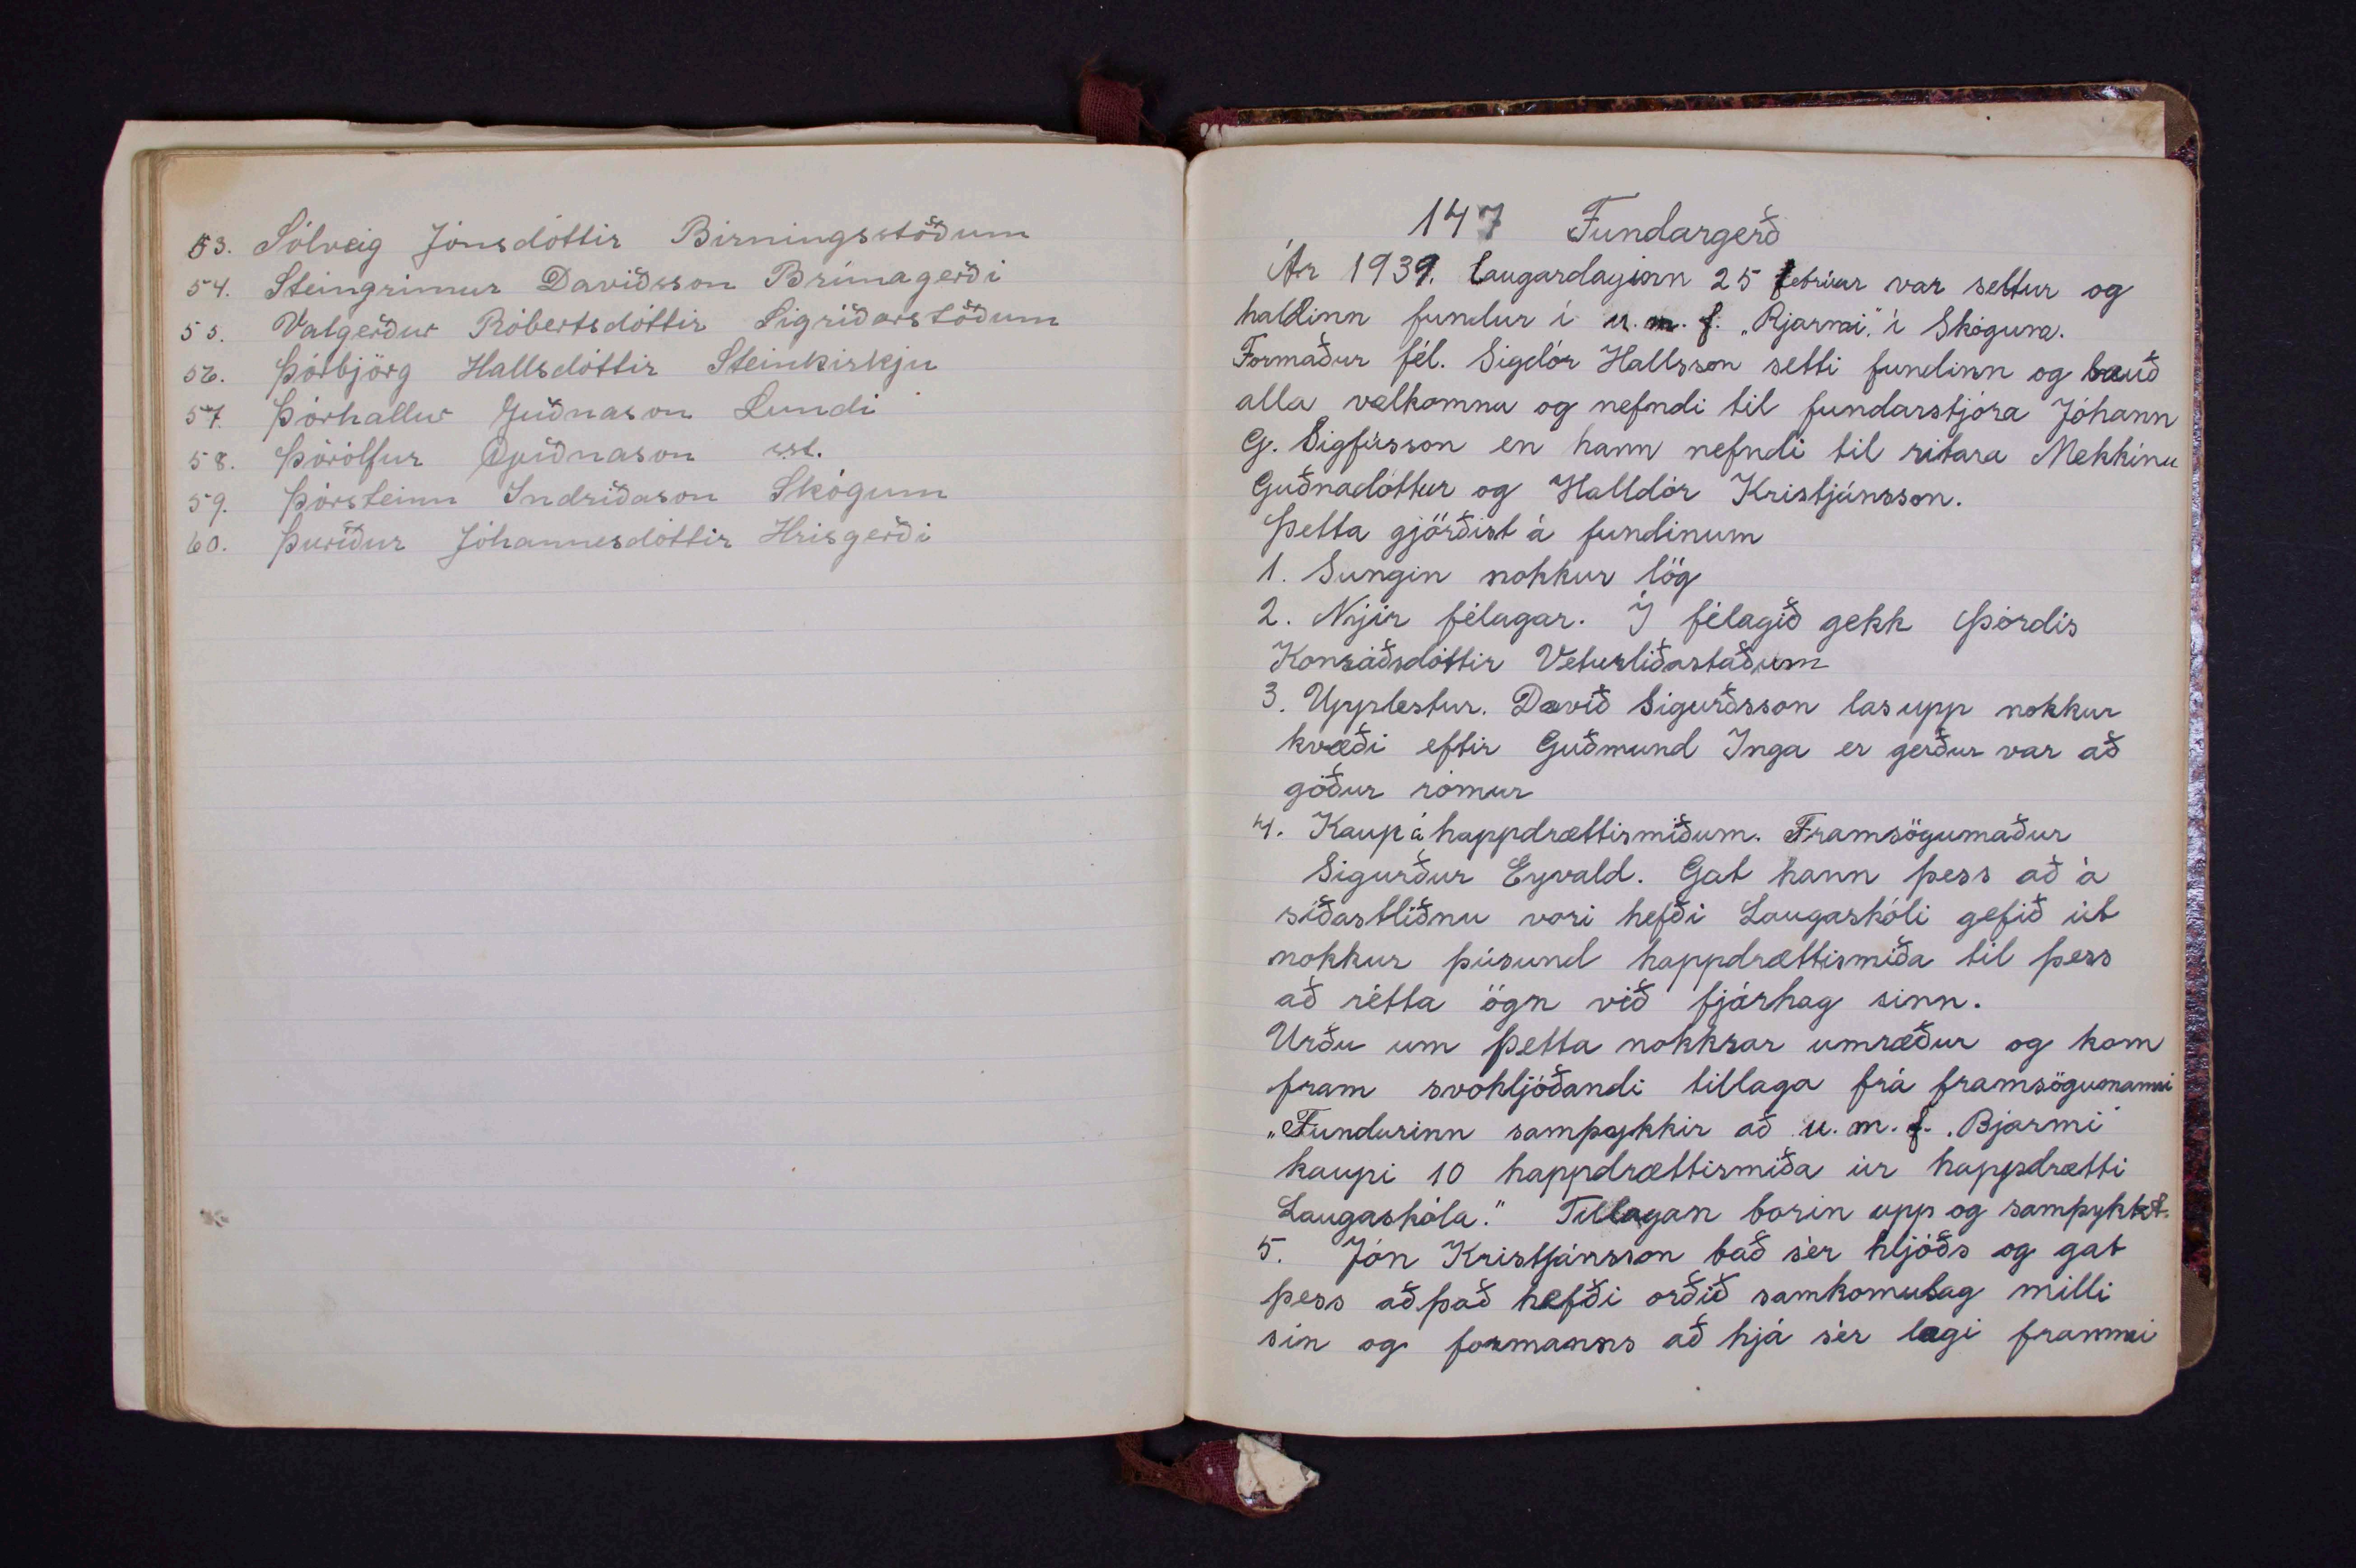 53. Sólveig Jónsdóttir Birningsstöðum
54. Steingrímur Davíðsson Brúnagerði
55. Valgerður Róbertsdóttir Sigríðarstöðum
56. Þórbjörg Hallsdóttir Steinkirkju
57. Þórhallur Guðnason Lundi
58. Þórólfur Guðnason sst.
59. Þórsteinn Indriðason Skógum
60. Þuríður Jóhannesdóttir Hrísgerði
147 Fundargerð
Ár 1939. laugardaginn 25 febrúar var settur og
haldinn fundur í u.m.f. „Bjarmi" í Skógum.
Formaður fél. Sigdór Hallsson setti fundinn og bauð
alla velkomna og nefndi til fundarstjóra Jóhann
G. Sigfússon en hann nefndi til ritara Mekkínu
Guðnadóttur og Halldór Kristjánsson.
Þetta gjörðist á fundinum
1. Sungin nokkur lög
2. Nýjir félagar. Í félagið gekk Þórdís
Konráðsdóttir Veturliðastaðum
3. Upplestur. Davíð Sigurðsson las upp nokkur
kvæði eftir Guðmund Inga er gerður var að
góður rómur
4. Kaup á happdrættismiðum. Framsögumaður
Sigurður Eyvald. Gat hann þess að á
síðastliðnu vori hefði Laugaskóli gefið út
nokkur þúsund happdrættismiða til þess
að rétta ögn við fjárhag sinn.
Urðu um þetta nokkrar umræður og kom
fram svohljóðandi tillaga frá framsögumanni
„Fundurinn samþykkir að u.m.f. „Bjarmi"
kaupi 10 happdrættismiða úr happdrætti
Laugaskóla." Tillagan borin upp og samþykkt.
5. Jón Kristjánsson bað sér hljóðs og gat
þess að það hefði orðið samkomulag milli
sín og formanns að hjá sér lægi frammi